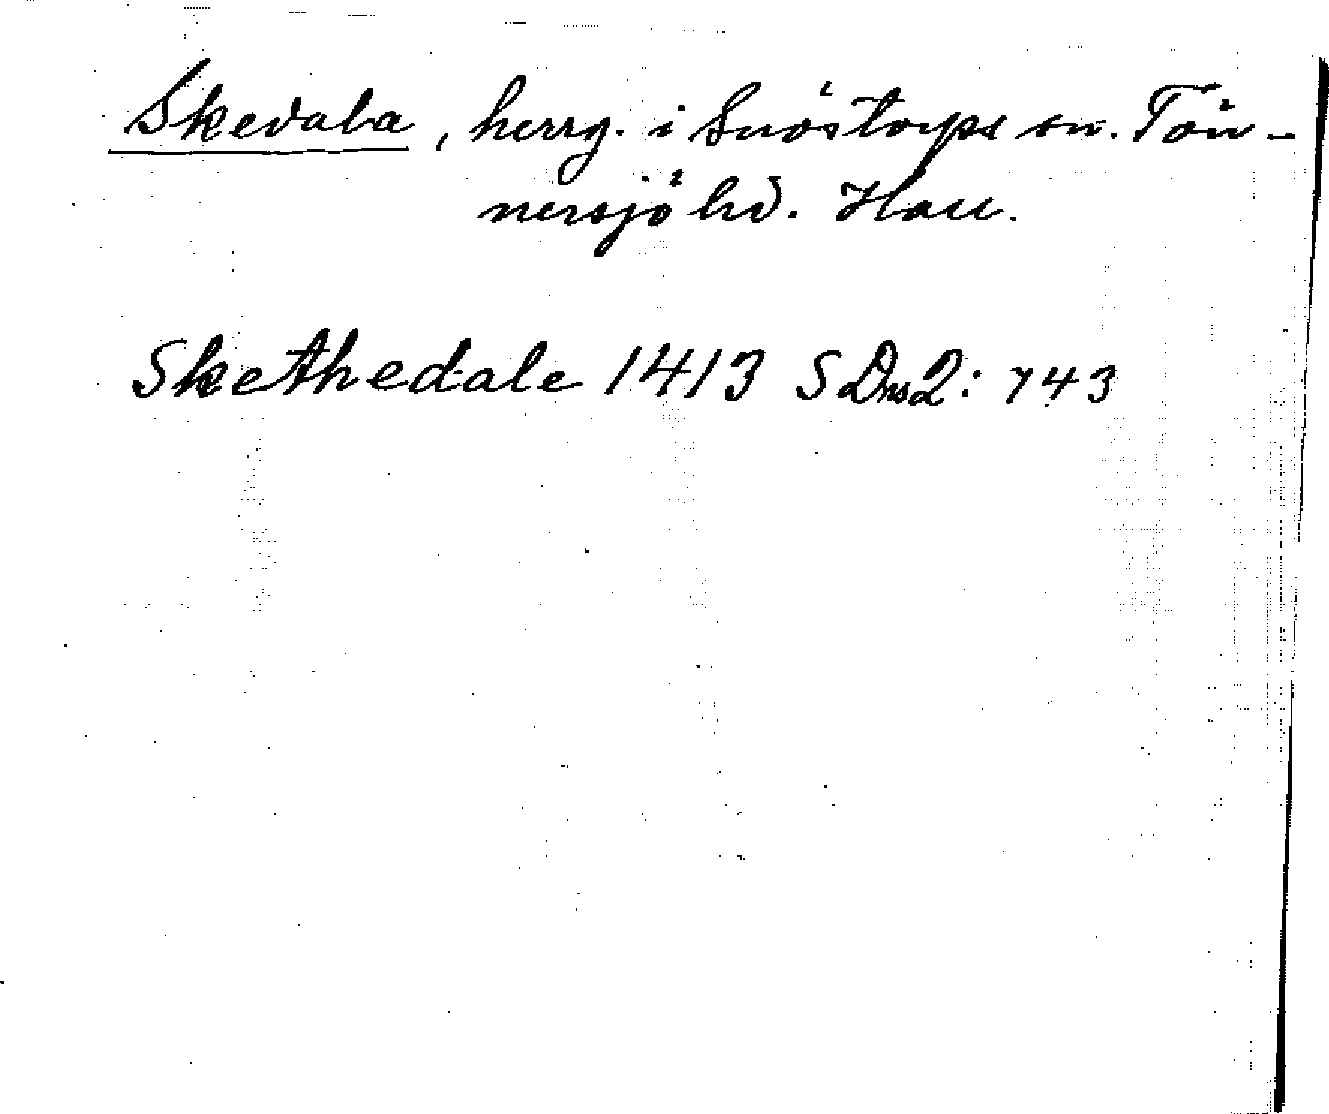 Skedala, herrg. i Snöstorps sn. Tön-
nersjö hd. Hall.
Skethedale 1413 SDns2: 743